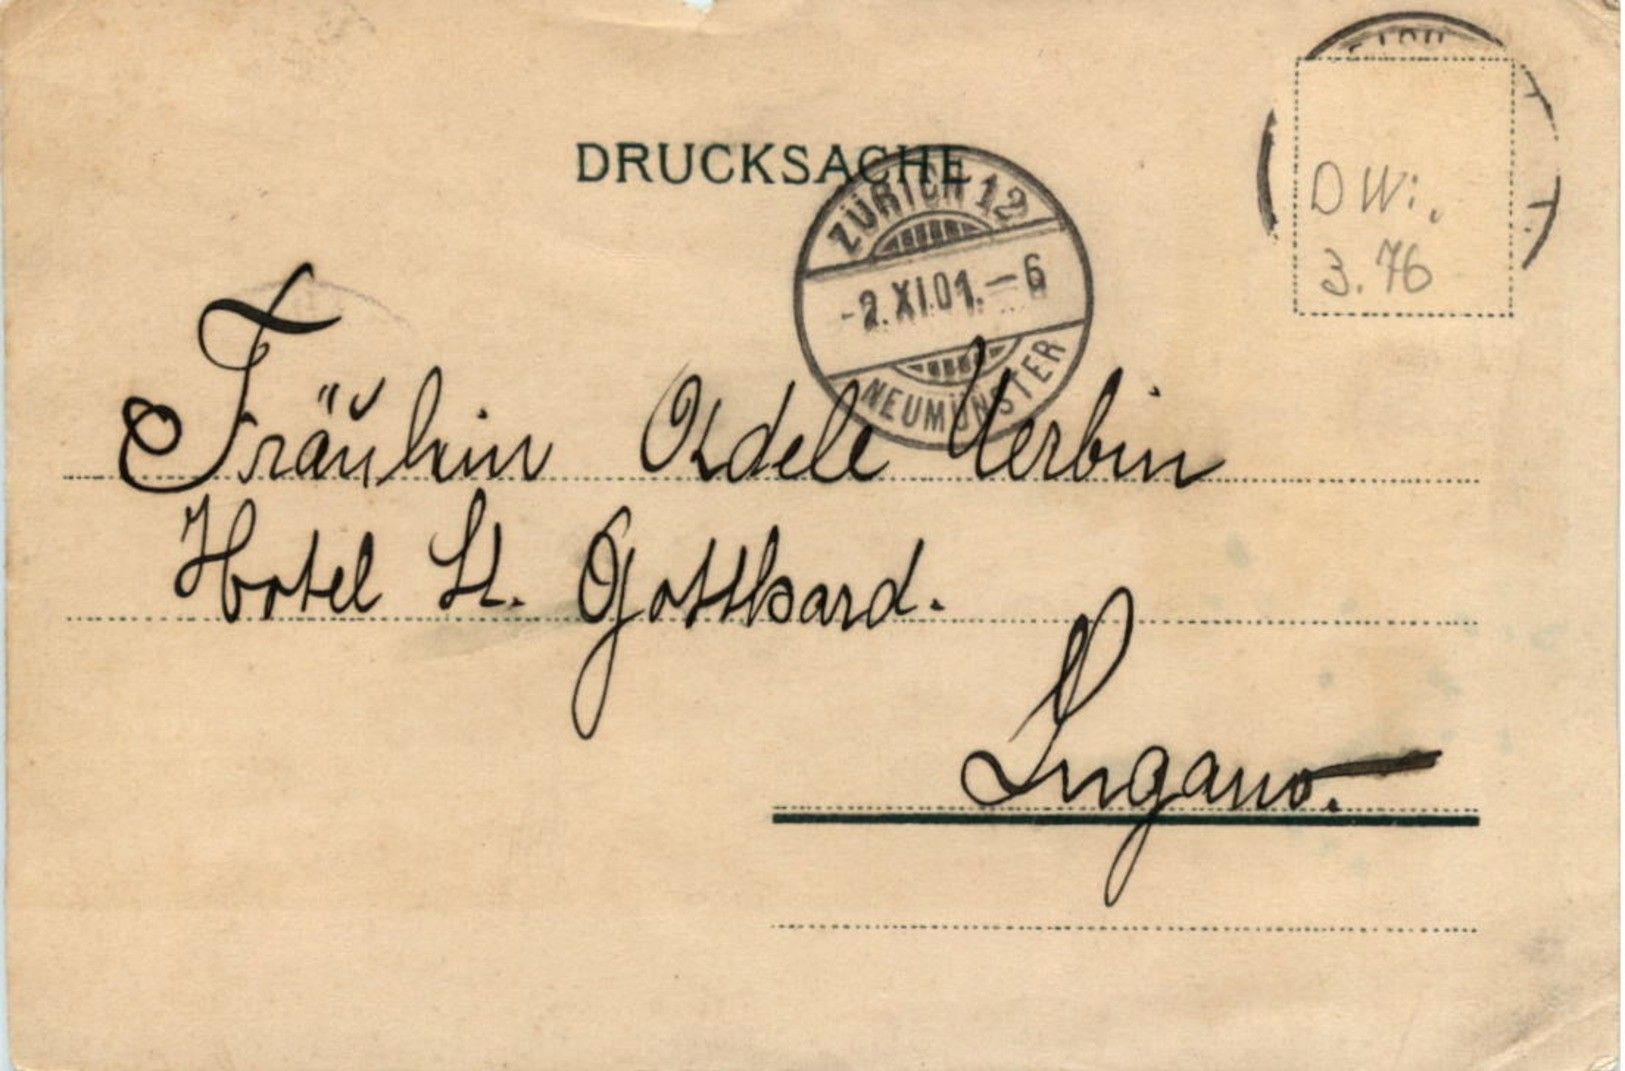 DRUCKSACHE
ZÜRICH 12
-2.XI.01.-6
NEUMÜNSTER
D Wi.
3.76
Fräulein Adele Uerbin
Hotel St. Gotthard.
Lugano.